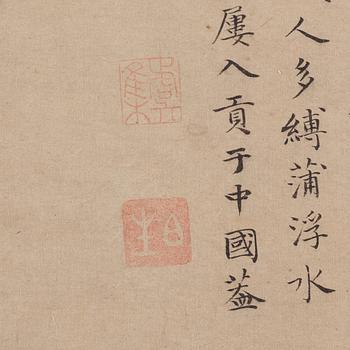 人多縛蒲浮水
屢入貢于中國蓋